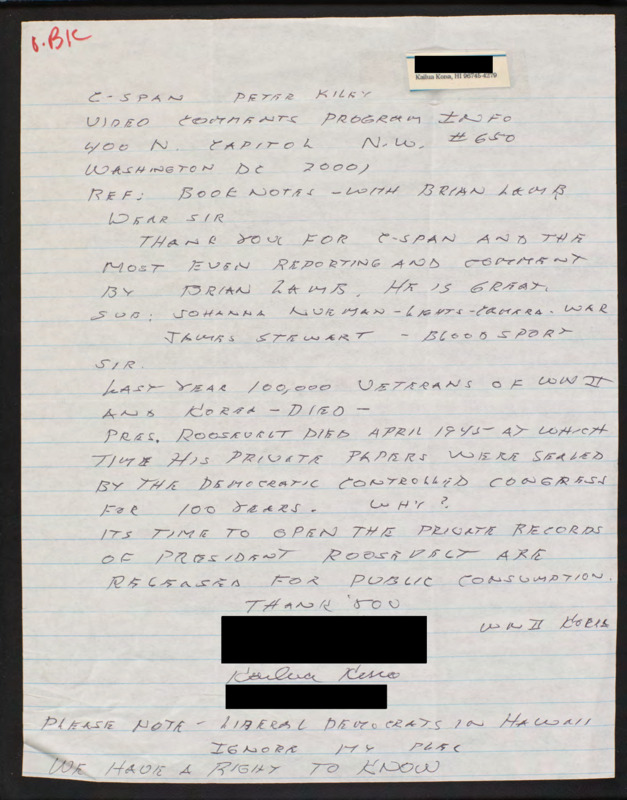 1.BK
Kailua Kona, HI 96745-4279
C-SPAN PETER KILEY
VIDEO COMMENTS PROGRAM INFO
400 N. CAPITOL N.W. #650
WASHINGTON DC 20001
REF: BOOK NOTES - WITH BRIAN LAMB
DEAR SIR
THANK YOU FOR C-SPAN AND THE
MOST EVEN REPORTING AND COMMENT
BY BRIAN LAMB. HE IS GREAT.
SUB: JOHANNA NUEMAN - LIGHTS - CAMERA. WAR
JAMES STEWART - BLOOD SPORT
SIR.
LAST YEAR 100,000 VETERANS OF WWII
AND KOREA - DIED -
PRES. ROOSEVELT DIED APRIL 1945 - AT WHICH
TIME HIS PRIVATE PAPERS WERE SEALED
BY THE DEMOCRATIC CONTROLLED CONGRESS
FOR 100 YEARS. WHY?
ITS TIME TO OPEN THE PRIVATE RECORDS
OF PRESIDENT ROOSEVELT ARE
RELEASED FOR PUBLIC CONSUMPTION.
THANK YOU
WWII KOREA
Kailua Kona
PLEASE NOTE - LIBERAL DEMOCRATS IN HAWAII
IGNORE MY PLEA
WE HAVE A RIGHT TO KNOW